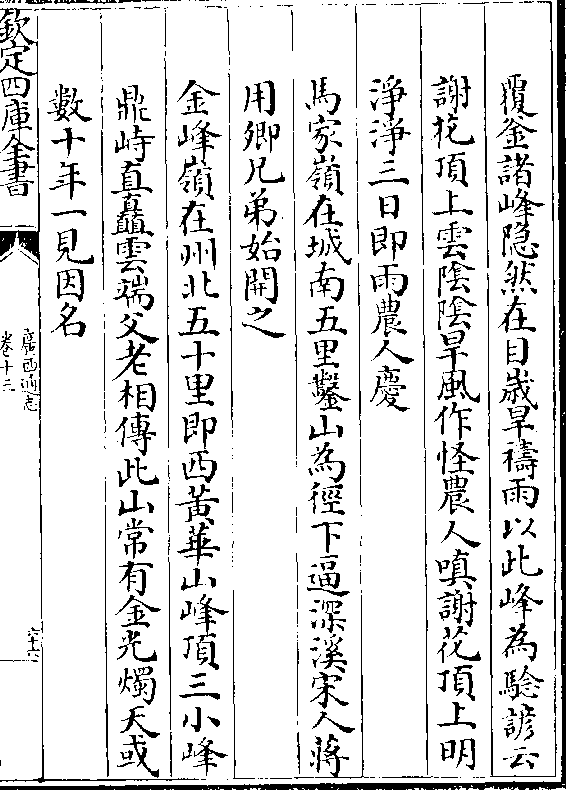 覆釡諸峰隐然在目歳旱禱雨以此峰為騐諺云
謝花頂上雲陰陰旱風作怪農人嗔謝花頂上明
淨淨三日即雨農人慶
馬家嶺在城南五里鑿山為徑下逼深溪宋人蔣
用卿兄弟始開之
金峰嶺在州北五十里即西黄華山峰頂三小峰
鼎峙直矗雲端父老相傳此山常有金光燭天或
數十年一見因名
欽定四庫全書
廣西通志
卷十三
六十六